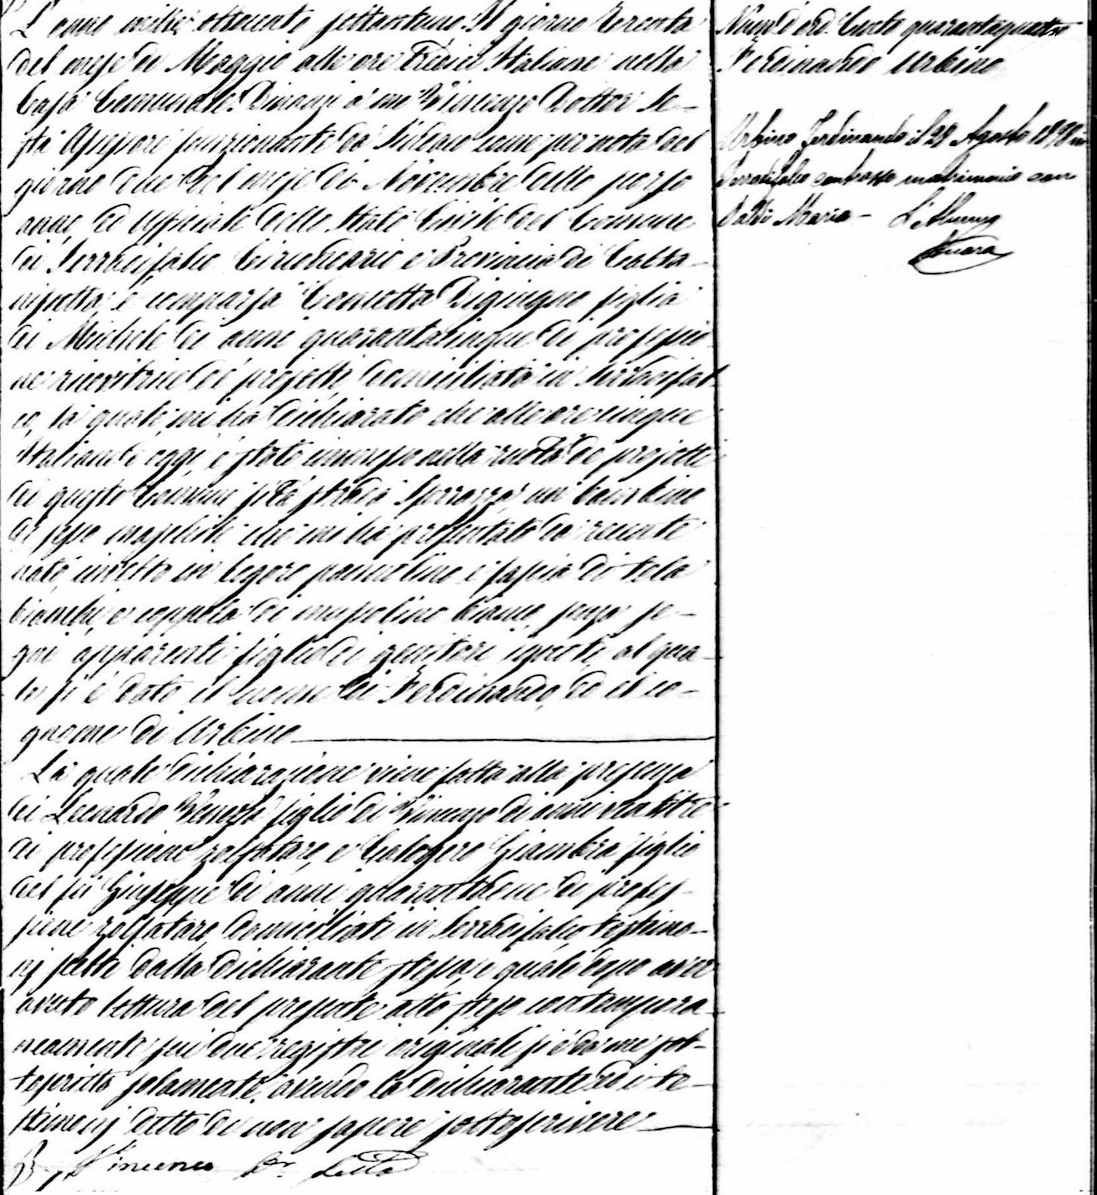 L'anno mille ottocento settantuno. Il giorno trenta
del mese di Maggio alle ore Tredici Italiane nella
Casa Comunale. Dinanzi a me Vincenzo Dottor
Assessore funzionante da Sindaco come per nota del
giorno due del mese di Novembre dello scorso
anno, ed Uffiziale dello Stato Civile del Comune
di Serradifalco Circondario e Provincia di Calta-
nissetta, è comparsa Concetta Digiugno figlia
di Michele di anni quarantacinque di professio-
ne ricevitrice di projetti, domiciliata in Serradifal-
co, la quale mi ha dichiarato che alle ore cinque
Italiane di oggi, è stato immesso nella ruota de' projetti
di questo Comune sita strada un bambino
di sesso maschile che mi ha presentato da recente
nato, involto in logoro pannolino e fascia di tela
bianchi, e coppola di mussolino bianco, senza se-
gni apparenti figlio di genitori ignoti, al qua-
le si è dato il nome di Ferdinando, ed il co-
gnome di Urbino
La quale dichiarazione viene fatta alla presenza
di Leonardo figlio di Vincenzo di anni
di professione zolfataro, e Calogero Giambra figlio
del fu Giuseppe di anni quarantadue di profes-
sione zolfataro domiciliati in Serradifalco testimo-
nj scelti dalla dichiarante stessa, e quale dopo aver
avuto lettura del presente atto steso contempora-
neamente sui due registri originali si è da me sot-
toscritto solamente, avendo la dichiarante ed i te-
stimonj detto di non sapere sottoscrivere
Vincenzo Dr
Num. d'ord. Cento quarantaquattro
Ferdinando Urbino
Urbino Ferdinando il 29 Agosto 1898 in
Serradifalco contrasse matrimonio con
Maria -